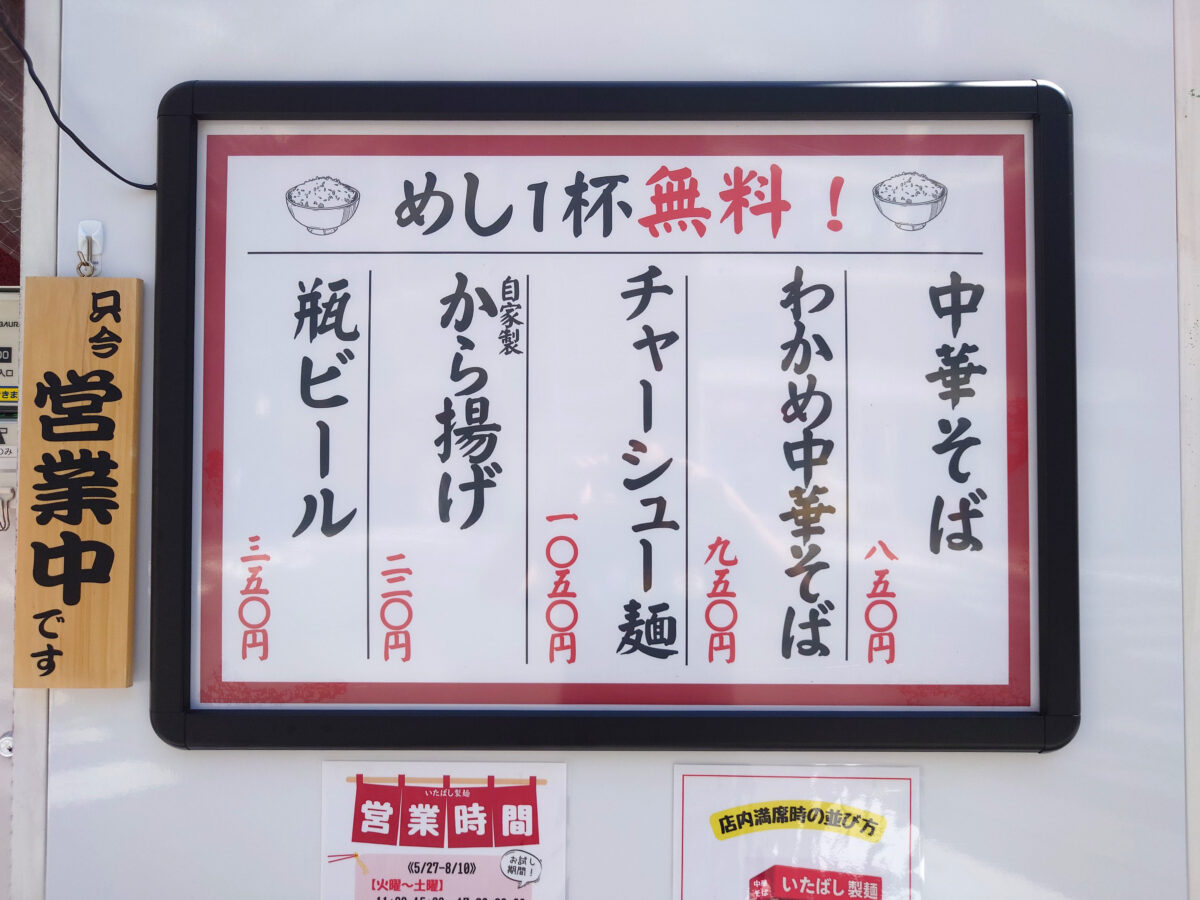 めし1杯無料！
中華そば
八五〇円
わかめ中華そば
九五〇円
チャーシュー麺
一〇五〇円
自家製
から揚げ
二二〇円
瓶ビール
三五〇円
只今
営業中
です
いたばし製麺
営業時間
お試し
期間！
《5/27-8/10》
【火曜〜土曜】
店内満席時の並び方
中華
そば
いたばし製麺
入口